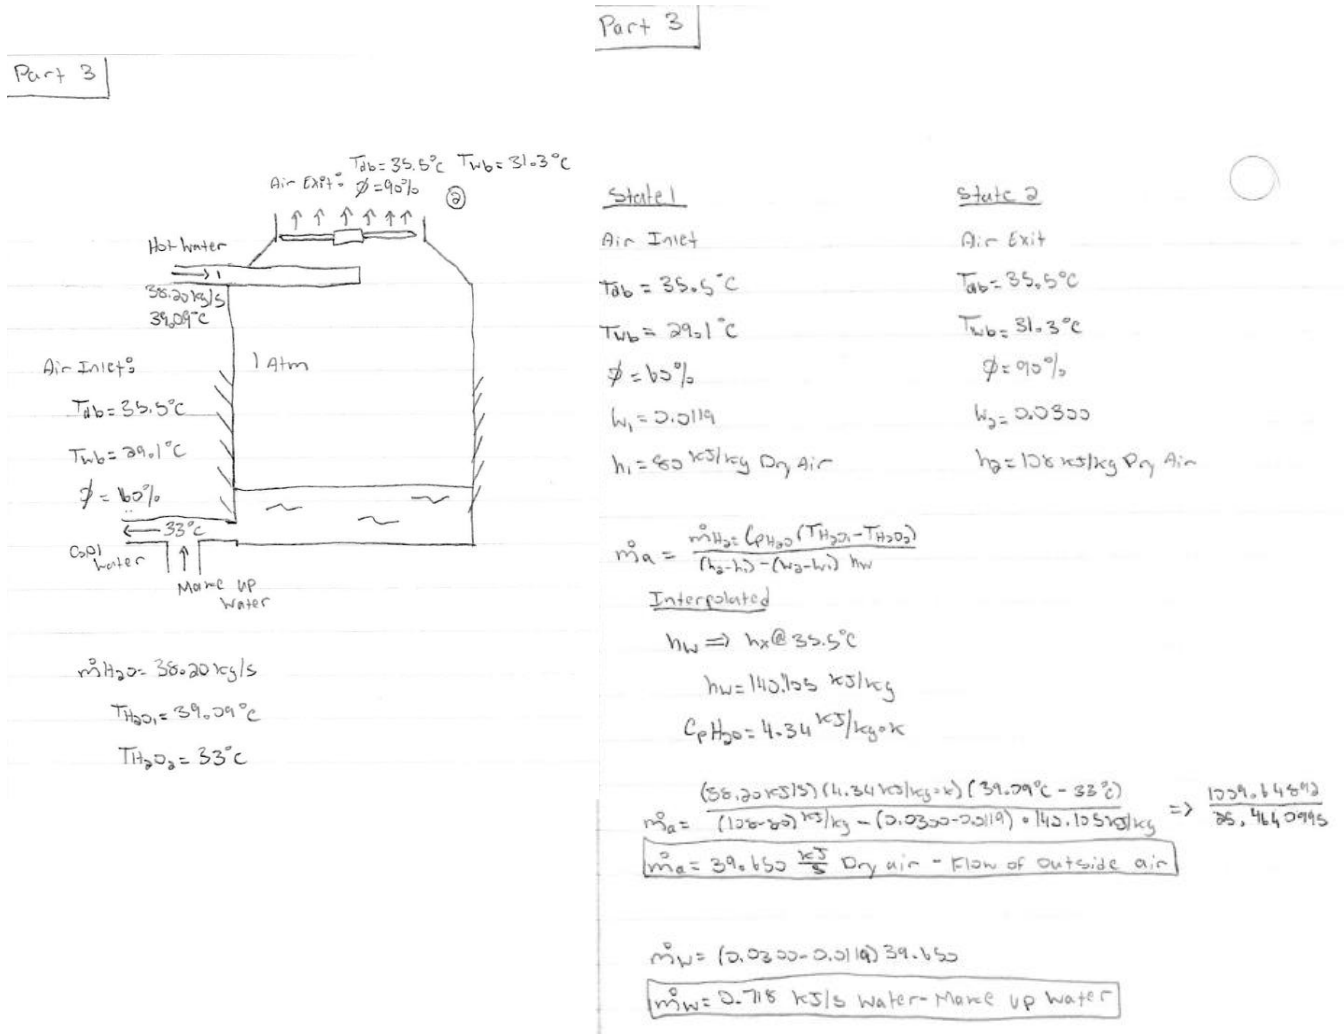 Part 3
Tdb = 35.5°C Twb = 31.3°C
Air Exit: φ = 90%
②
Hot water
1
38.20 kg/s
39.09°C
Air Inlet:
1 Atm
Tdb = 35.5°C
Twb = 29.1°C
φ = 60%
33°C
Cool water
Make up water
ṁH₂O = 38.20 kg/s
TH₂O₁ = 39.09°C
TH₂O₂ = 33°C
Part 3
State 1
Air Inlet
Tdb = 35.5°C
Twb = 29.1°C
φ = 60%
W₁ = 0.0119
h₁ = 80 kJ/kg Dry Air
State 2
Air Exit
Tdb = 35.5°C
Twb = 31.3°C
φ = 90%
W₂ = 0.0300
h₂ = 108 kJ/kg Dry Air
ṁa = ṁH₂O CpH₂O (TH₂O₁ - TH₂O₂) / (h₂-h₁) - (w₂-w₁) hw
Interpolated
hw ⇒ hx @ 35.5°C
hw = 140.105 kJ/kg
CpH₂O = 4.34 kJ/kg·K
ṁa = (38.20 kJ/s) (4.34 kJ/kg·K) (39.09°C - 33°C) / (108-80) kJ/kg - (0.0300-0.0119) · 140.105 kJ/kg ⇒ 1009.64892 / 25.4640995
ṁa = 39.650 kJ/s Dry air - Flow of outside air
ṁw = (0.0300-0.0119) 39.650
ṁw = 0.718 kJ/s Water - Make up water